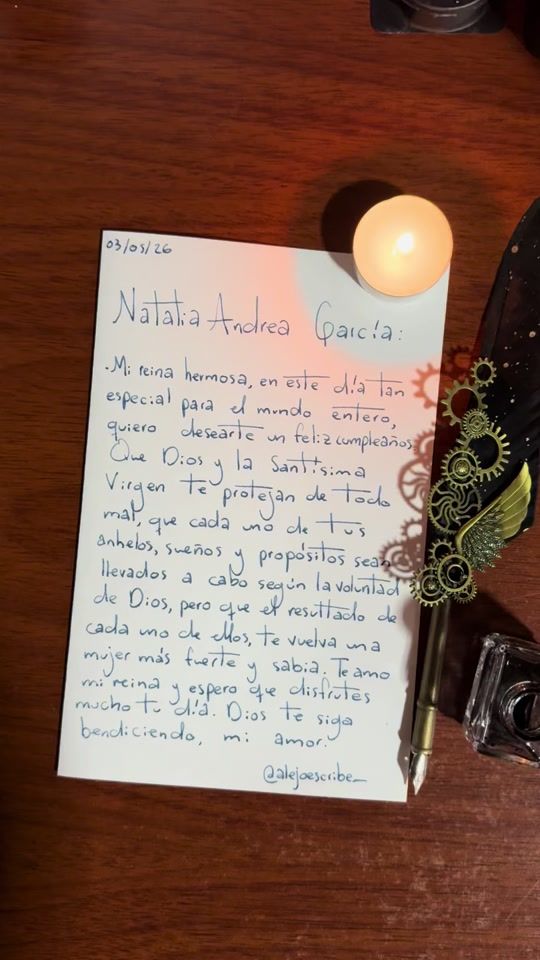 03/05/26
Natalia Andrea García:
-Mi reina hermosa, en este día tan
especial para el mundo entero,
quiero desearte un feliz cumpleaños.
Que Dios y la Santísima
Virgen te protejan de todo
mal, que cada uno de tus
anhelos, sueños y propósitos sean
llevados a cabo según la voluntad
de Dios, pero que el resultado de
cada uno de ellos, te vuelva una
mujer más fuerte y sabia. Te amo
mi reina y espero que disfrutes
mucho tu día. Dios te siga
bendiciendo, mi amor.
@alejoescribe_